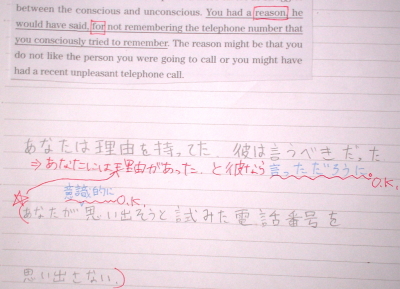 between the conscious and unconscious. You had a reason, he
would have said, for not remembering the telephone number that
you consciously tried to remember. The reason might be that you
do not like the person you were going to call or you might have
had a recent unpleasant telephone call.
あなたは理由を持ってた. 彼は言うべきだった
⇒ あなたには理由があった. と彼なら言っただろうに。O.K.
意識的に O.K.
(あなたが思い出そうと試みた電話番号を
思い出さない.)